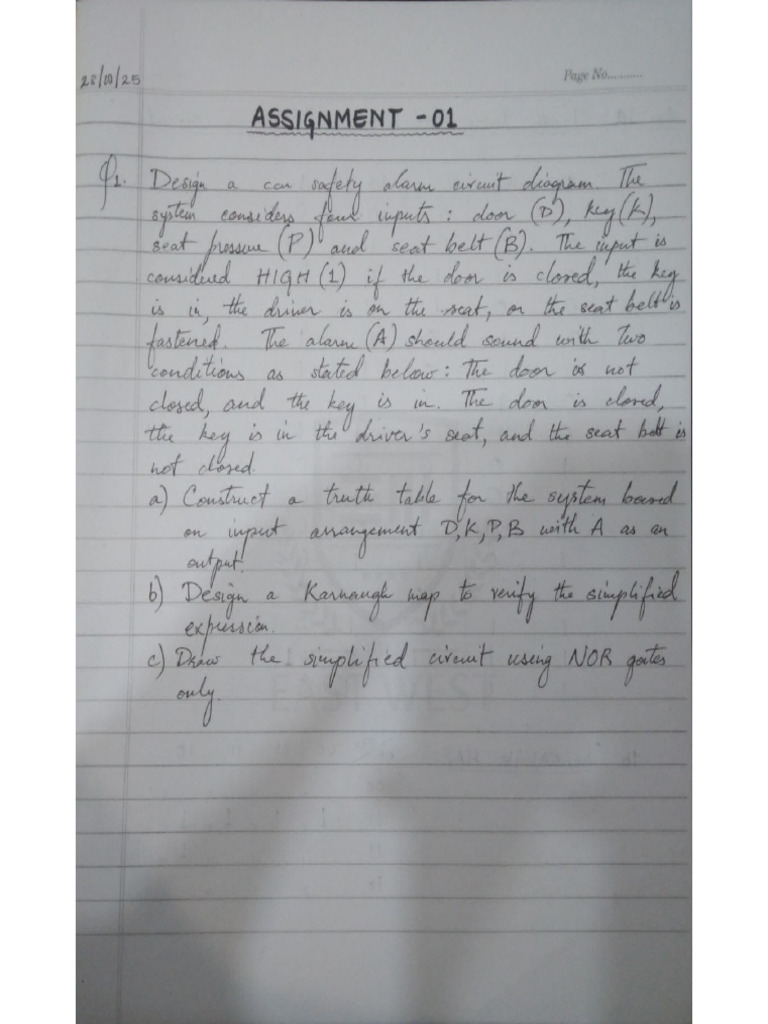 28/10/25
Page No..........
ASSIGNMENT - 01
Q1. Design a car safety alarm circuit diagram. The
system considers four inputs : door (D), key (K),
seat pressure (P) and seat belt (B). The input is
considered HIGH (1) if the door is closed, the key
is in, the driver is on the seat, or the seat belt is
fastened. The alarm (A) should sound with Two
conditions as stated below : The door is not
closed, and the key is in. The door is closed,
the key is in the driver's seat, and the seat belt is
not closed.
a) Construct a truth table for the system based
on input arrangement D, K, P, B with A as an
output.
b) Design a Karnaugh map to verify the simplified
expression.
c) Draw the simplified circuit using NOR gates
only.
EAST WEST